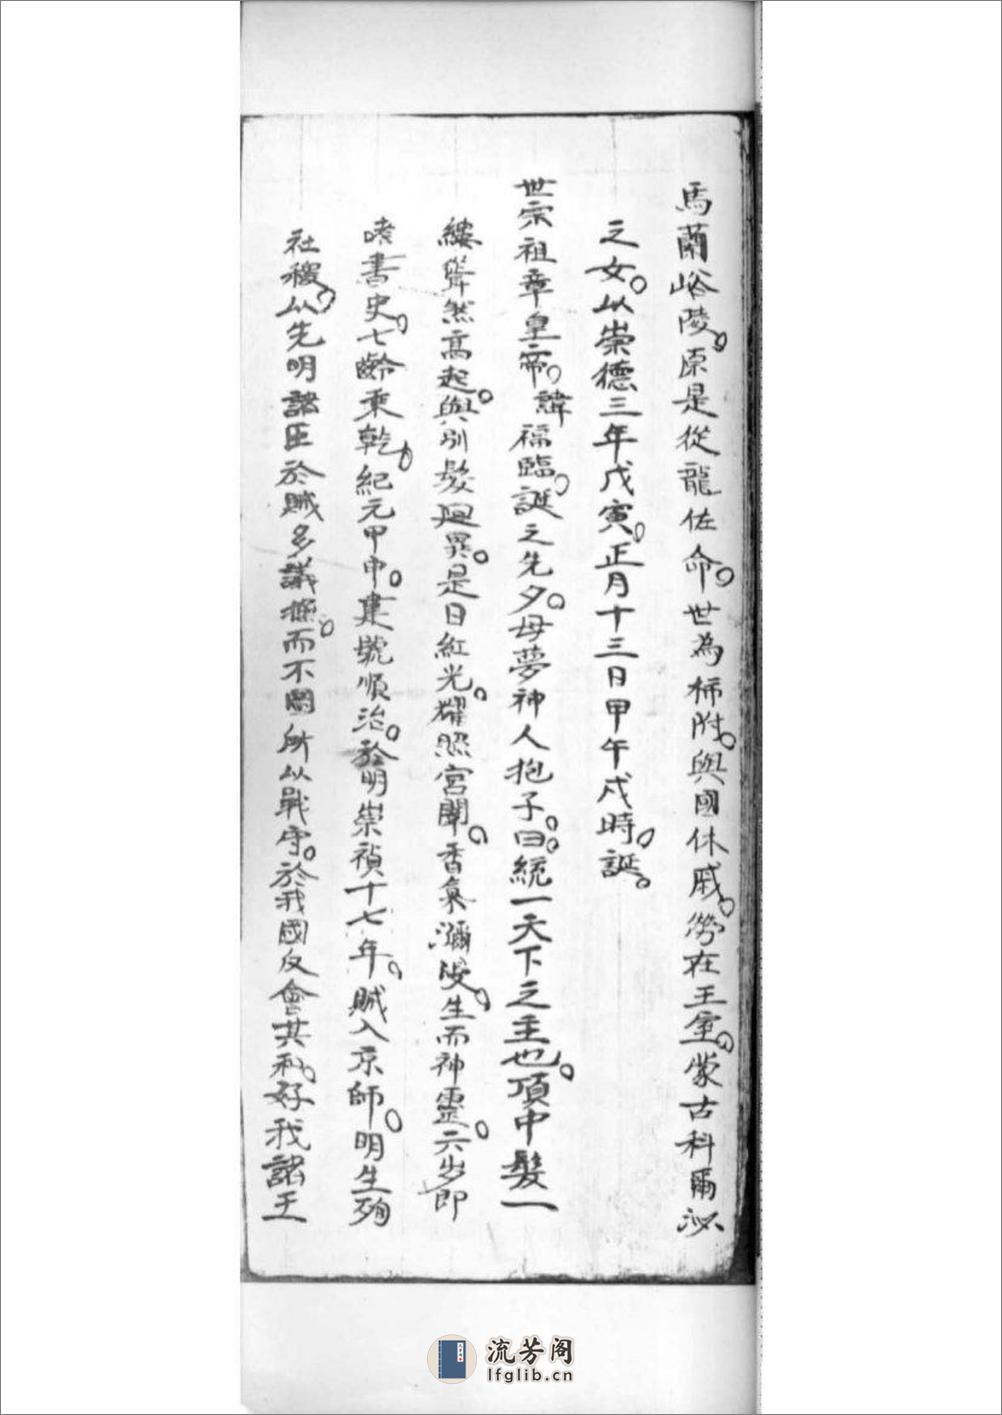 馬蘭峪陵。原是從龍佐命。世為柿附。與國休戚。勞在王室。蒙古科爾泌
之女。以崇德三年戊寅。正月十三日甲午戌時。誕。
世宗祖章皇帝。諱福臨。誕之先夕。母夢神人抱子。曰。統一天下之主也。頂中髮一
縷聳然高起。與別髮迥異。是日紅光。耀照宮闈。香氣瀰漫。生而神靈。六岁即
嗜書史。七齡乘乾。紀元甲申。建號順治。於明崇禎十七年。賊入京師。明生殉
社稷。以先明諸臣於賊多議撫。而不圖所以戰守。於我國反會其私。好我諸王
流芳阁
lfglib.cn